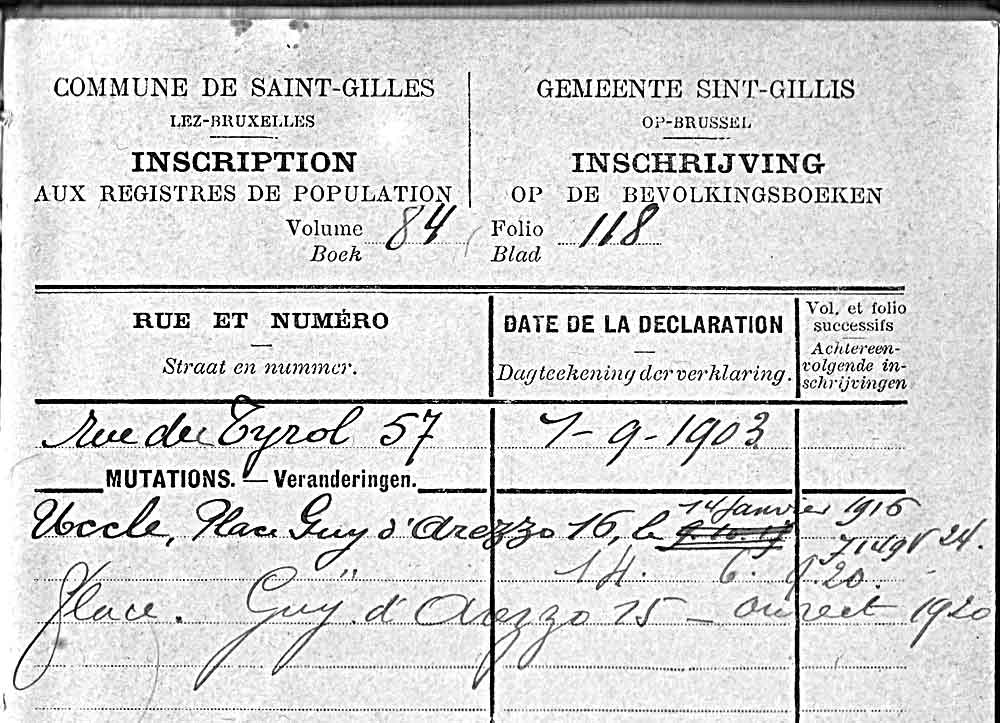 COMMUNE DE SAINT-GILLES
LEZ-BRUXELLES
INSCRIPTION
AUX REGISTRES DE POPULATION
GEMEENTE SINT-GILLIS
OP-BRUSSEL
INSCHRIJVING
OP DE BEVOLKINGSBOEKEN
Volume 84 Folio 118
Boek Blad
RUE ET NUMÉRO
Straat en nummer.
DATE DE LA DECLARATION
Dagteekening der verklaring.
Vol. et folio
successifs
Achtereen-
volgende in-
schrijvingen
Rue du Tyrol 57 7-9-1903
MUTATIONS. — Veranderingen.
14 Janvier 1916
Uccle, Place Guy d'Arezzo 16, le
24.
14. 6. 20.
Place. Guy d'Arezzo 15 — 1920